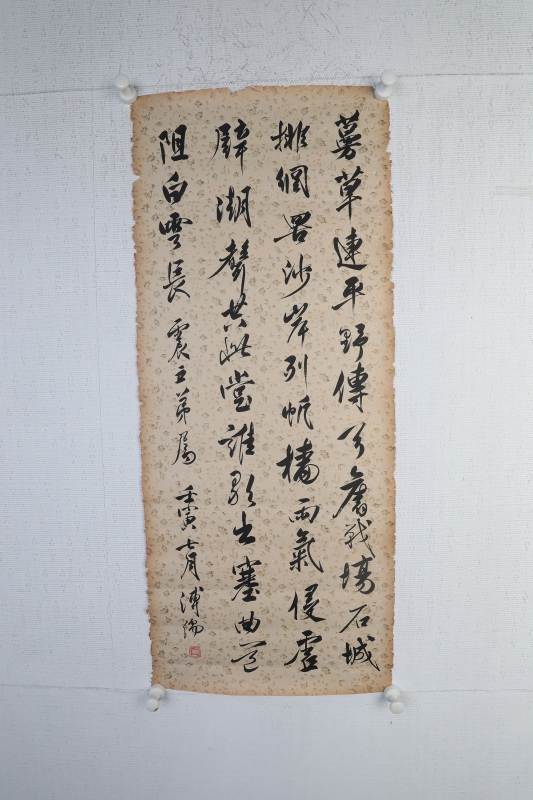 蔓草連平野傳云舊戰場石城
排網罟沙岸列帆檣雨氣侵虛
壁潮聲共此堂誰歌出塞曲道
阻白雲長 震五弟屬 壬寅七月溥儒